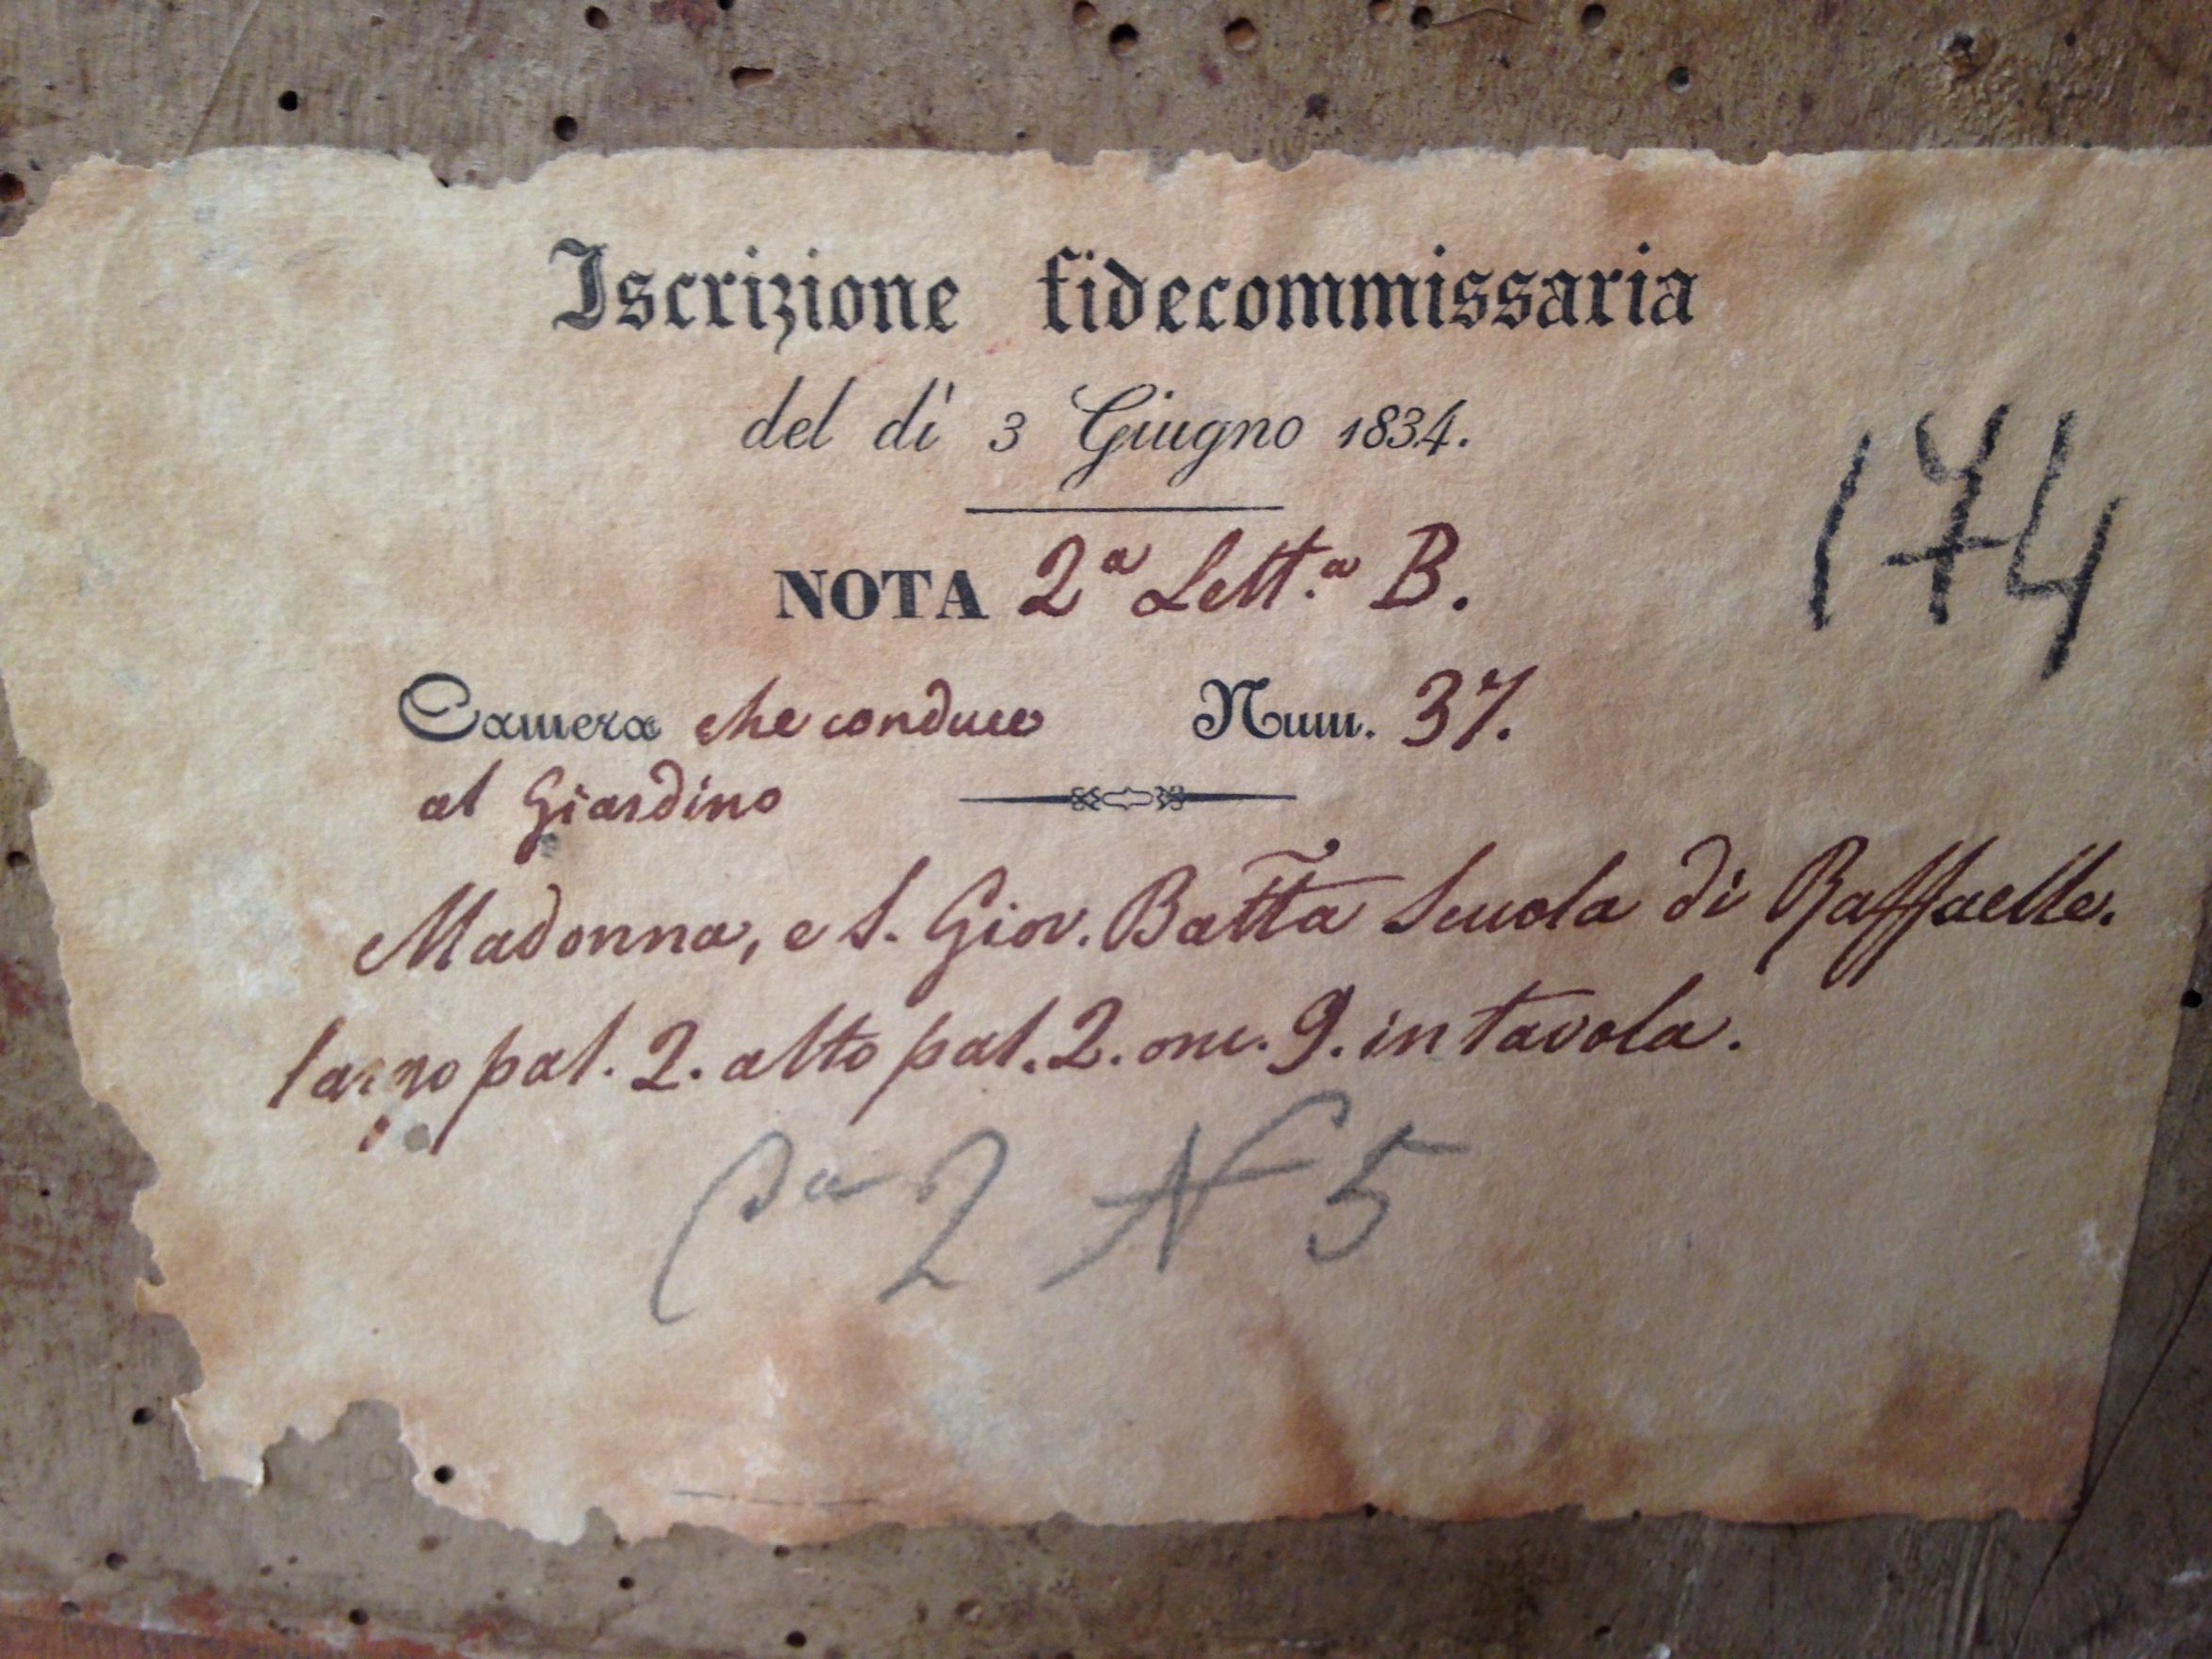 Iscrizione fidecommissaria
del dì 3 Giugno 1834.
174
NOTA 2ª Lett.ª B.
Camera che conduce Num. 37.
al Giardino
Madonna, e S. Giov. Batta Scuola di Raffaelle.
largo pal. 2. alto pal. 2. onc. 9. in tavola.
2 N 5